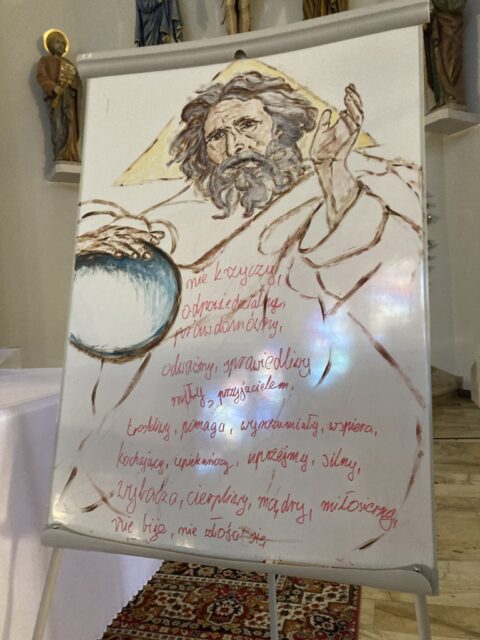 nie krzyczy,
odpowiedzialny,
prawdomówny,
odważny, sprawiedliwy
miły, przyjacielem,
troskliwy, pomaga, wyrozumiały, wspiera,
kochający, opiekuńczy, uprzejmy, silny,
wybacza, cierpliwy, mądry, miłosierny,
nie bije, nie złości się